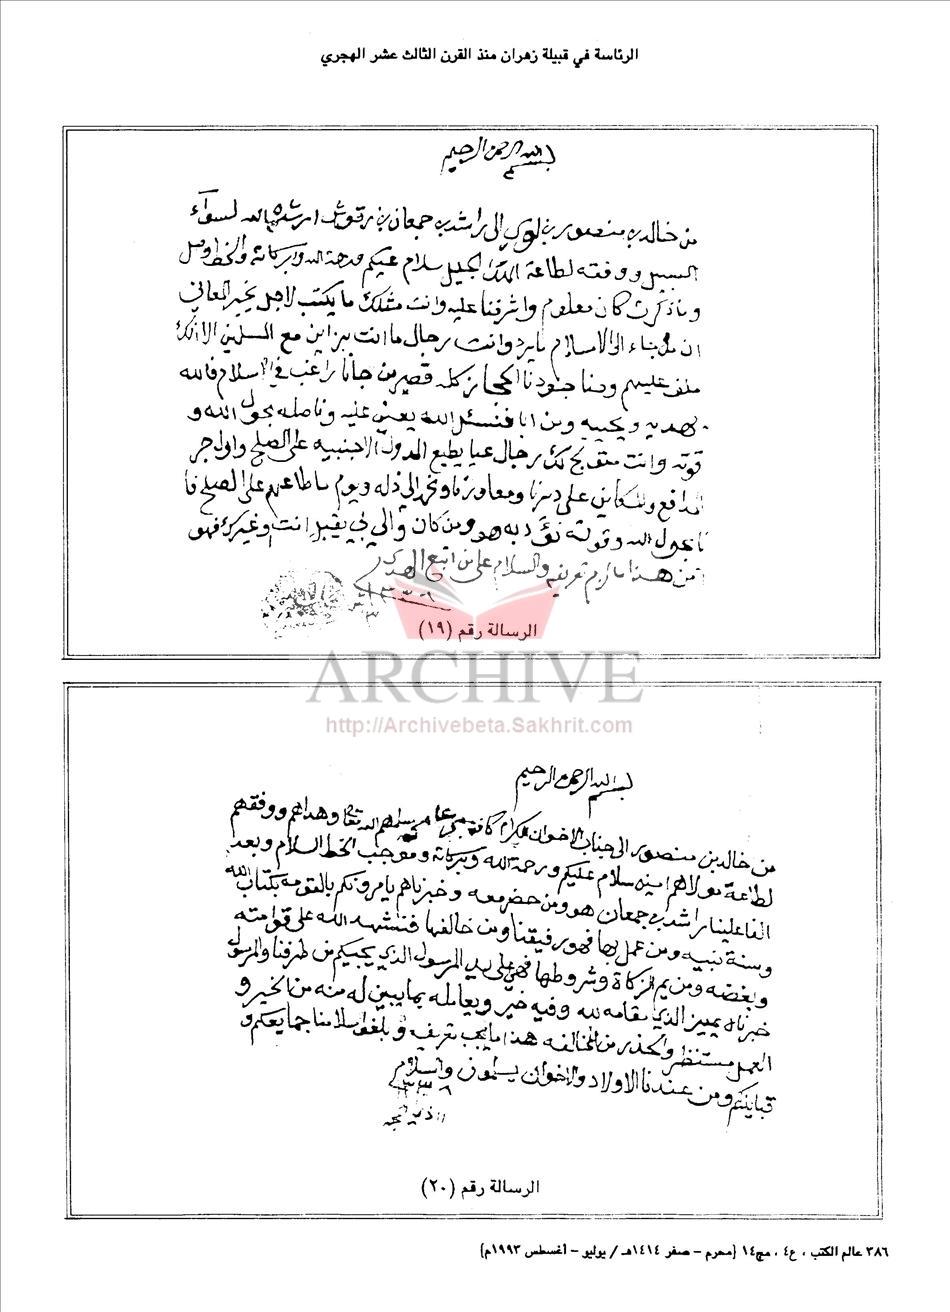 الرئاسة في قبيلة زهران منذ القرن الثالث عشر الهجري
بسم الله الرحمن الرحيم
من خالد بن منصور بن لوي الى راشد بن جمعان بن رقوش ارشده الله لسواء
السبيل ووفقه لطاعة الملك الجليل سلام عليكم ورحمة الله وبركاته والخط وصل
وما ذكرت كان معلوم واشرفنا عليه وانت مثلك ما يكتب لاجل يخبر المعاني
ان الى الاسلام وانت رجال ما انت مع المسلمين الا انك
ملفق عليهم وحنا جنودنا الحجاز كله قصير من جانا راغب في الاسلام فالله
يهديه ويحييه ومن ابا فنسئل الله يعين عليه وناصله بحول الله و
قوته وانت لك رجال يطيع الدول الاجنبيه على الصلح
المدافع والمكاين على ديرنا ويوم ما طاعهم على الصلح
بحول الله وقوته به هو ومن كان يقبل انت وغيرك فهو
من هذا ما لزم تعريفه والسلام على من اتبع الهدى
١٣٣٦
الرسالة رقم (١٩)
ARCHIVE
http://Archivebeta.Sakhrit.com
بسم الله الرحمن الرحيم
من خالد بن منصور الى جناب الاخوان المكرام كافة بني عامر سلمهم الله تعالى وهداهم ووفقهم
لطاعة مولاهم امين سلام عليكم ورحمة الله وبركاته وموجب الخط السلام وبعد
الفا علينا راشد بن جمعان هو ومن حضر معه وخبرناهم يامرونكم بالقومه بكتاب الله
وسنة نبيه ومن عمل بها فهو رفيقنا ومن خالفها فنشهد الله على قوامته
وبغضه ومن يم الزكاة وشروطها فهي على يدي المرسول الذي يجيكم من طرفنا والمرسول
خبرناه يميز الذي مقامه لله وفيه خير ويعامله بما يبين له منه من الخير و
العمل مستنظر والحذر من المخالفه هذا ما يجب تعريفه وبلغوا سلامنا جمايعكم و
قبايلكم ومن عندنا الاولاد والاخوان يسلمون والسلام
١٣٣٦
الحجه
الرسالة رقم (٢٠)
٣٨٦ عالم الكتب ، ع٤ ، مج١٤ (محرم - صفر ١٤١٤هـ / يوليو - أغسطس ١٩٩٣م)